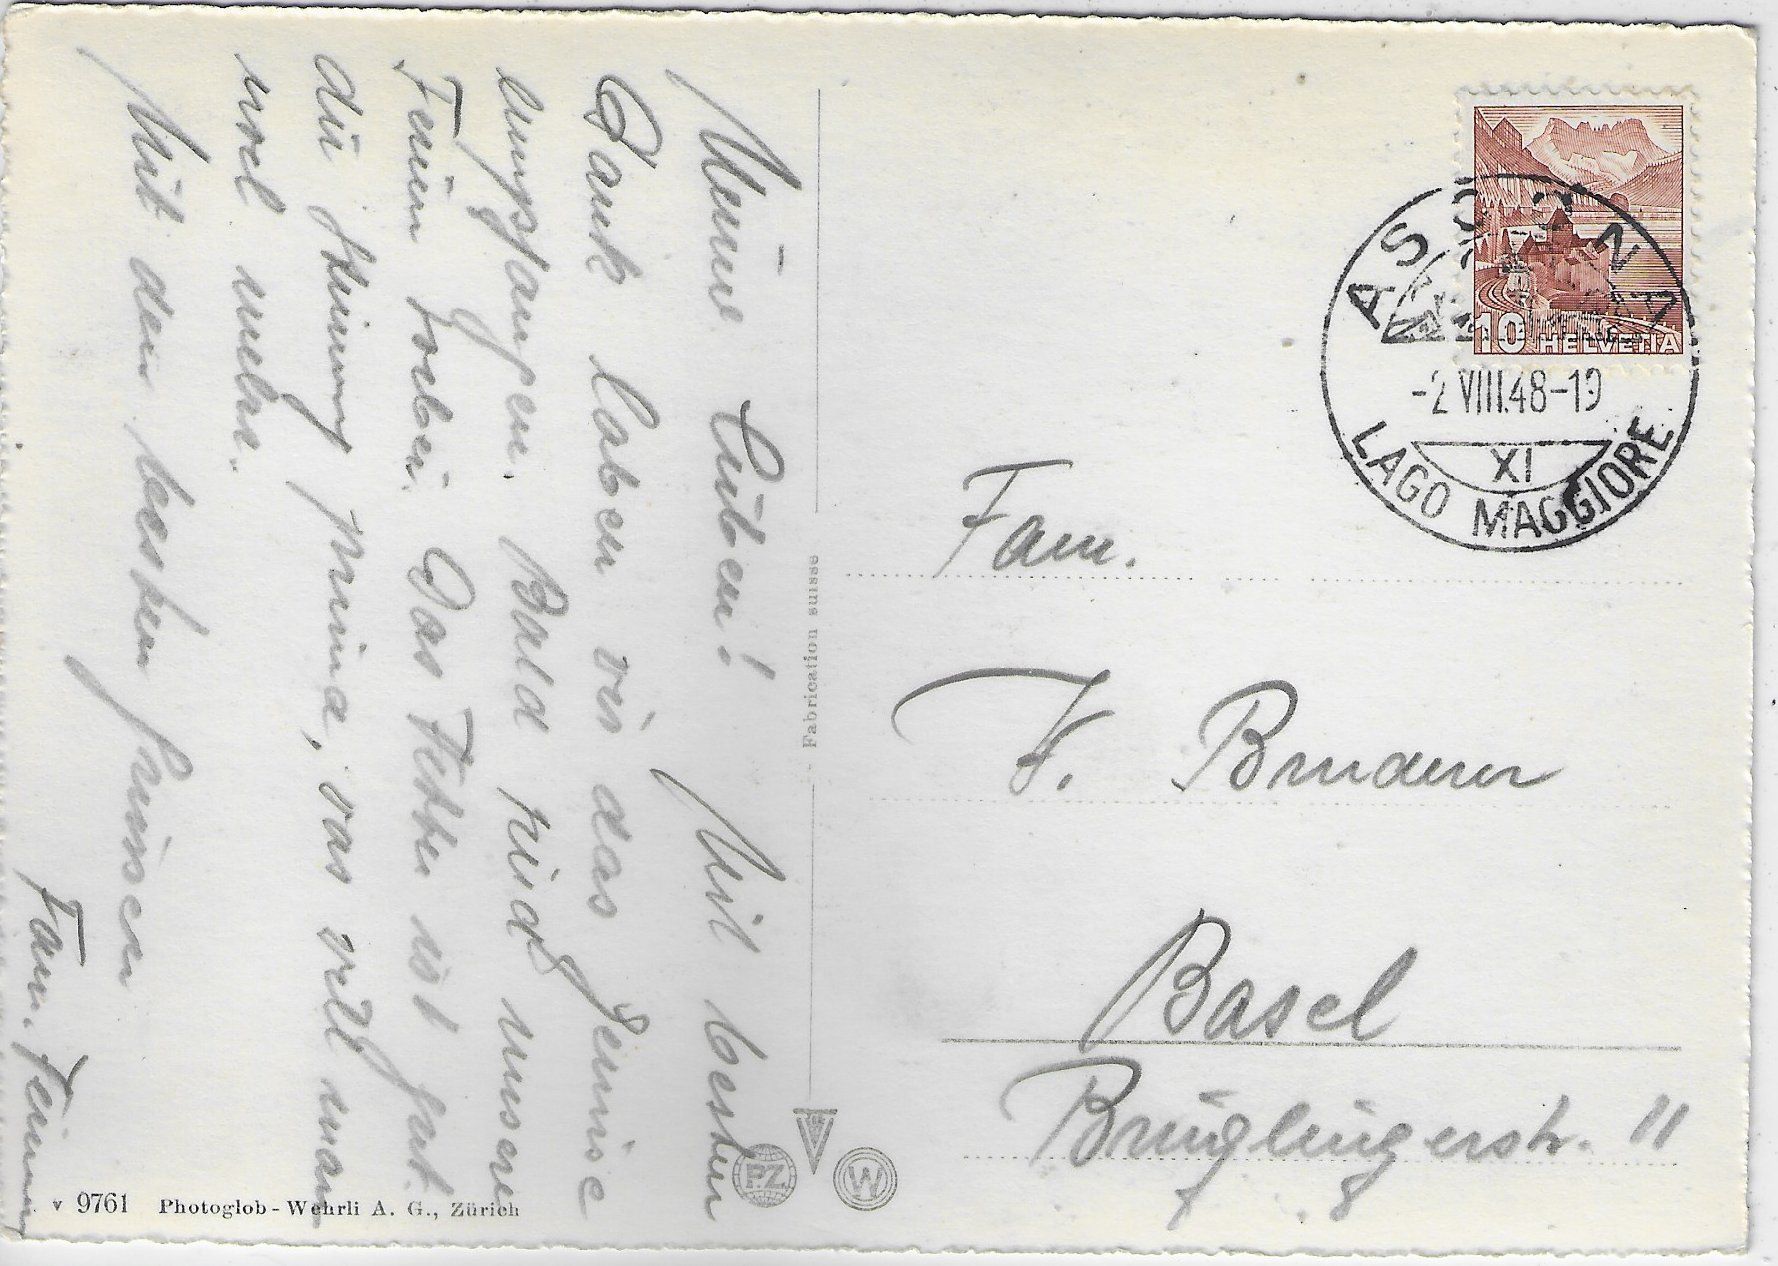 Meine Lieben! Mit besten
Dank haben wir das Gemüse
empfangen. Bald sind unsere
Ferien vorbei. Das Wetter ist gut.
die Stimmung prima, was will man
noch mehr.
Mit den besten Grüssen
Fam.
Fabrication suisse
v 9761 Photoglob-Wehrli A. G., Zürich
P.Z.
W
10 HELVETIA
ASCONA
-2.VIII.48-19
XI
LAGO MAGGIORE
Fam.
Bruderer
Basel
Brüglingerstr. 11